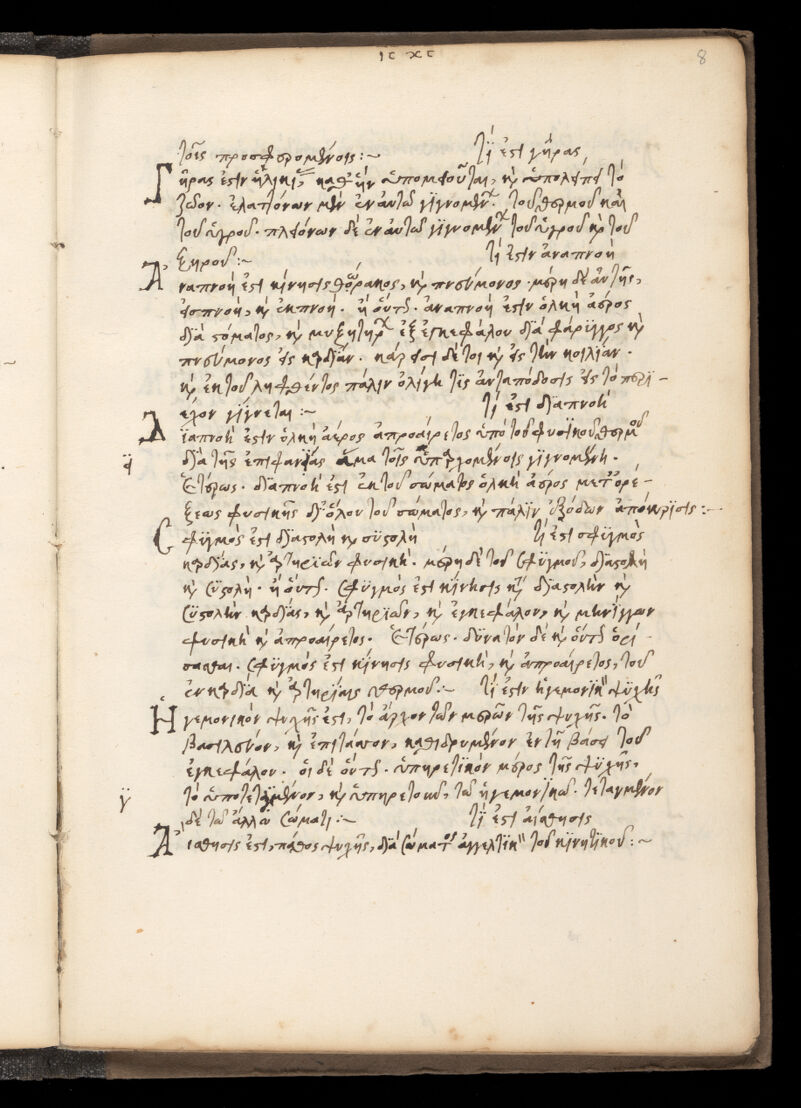 ις χς
8
τοῖς προσφερομένοις :~ τί ἐστι γῆρας
Γῆρας ἐστὶν ἡλικία, καθ' ἣν ἀπομειοῦται, καὶ ἀπολείπει τὸ
ζῶον. ἐλαττόνων μὲν ἐν αὐτῶ γιγνομένων τοῦ θερμοῦ καὶ
τοῦ ὑγροῦ. πλειόνων δὲ ἐν αὐτῶ γιγνομένων τοῦ ψυχροῦ καὶ τοῦ
ξηροῦ :~ τί ἐστιν ἀναπνοή
Ἀναπνοή ἐστι κίνησις θώρακος, καὶ πνεύμονος. μέρη δὲ αὐτῆς,
εἰσπνοὴ, καὶ ἐκπνοή. ἢ οὕτως. ἀναπνοή ἐστιν ὁλκὴ ἀέρος
διὰ στόματος, καὶ μυξητήρων ἐξ ἐγκεφάλου διὰ φάρυγγος καὶ
πνεύμονος εἰς καρδίαν. κάτεισι δέ τοι καὶ εἰς τὴν κοιλίαν.
καὶ ἐκ τοῦ ληφθέντος πάλιν ὀλίγη τις ἀνταπόδοσις εἰς τὸ περι-
έχον γίγνεται :~ τί ἐστι διαπνοή
Διαπνοή ἐστιν ὁλκὴ ἀέρος ἀπροαίρετος ὑπὸ τοῦ φυσικοῦ θερμοῦ
διὰ τῆς ἐπιφανείας ἅμα τοῖς ὑπεργομένοις γιγνομένη.
Ἑτέρως. διαπνοή ἐστι ἐκ τοῦ σώματος ὁλκὴ ἀέρος μετ' ὀρέ-
ξεως φυσικῆς δι' ὅλου τοῦ σώματος, καὶ πάλιν ἐξόδων ἀπόκρισις :~
Σφυγμός ἐστι διαστολὴ καὶ συστολὴ τί ἐστι σφυγμός
καρδίας, καὶ ἀρτηριῶν φυσική. μέρη δὲ τοῦ σφυγμοῦ, διαστολὴ
καὶ συστολή. ἢ οὕτως. σφυγμός ἐστι κίνησις κατὰ διαστολὴν καὶ
συστολὴν καρδίας, καὶ ἀρτηριῶν, καὶ ἐγκεφάλου, καὶ μηνίγγων
φυσικὴ καὶ ἀπροαίρετος. Ἑτέρως. δυνατὸν δὲ καὶ οὕτως ὁρί-
σασθαι. σφυγμός ἐστι κίνησις φυσικὴ, καὶ ἀπροαίρετος, τοῦ
ἐν καρδία καὶ ἀρτηρίαις θερμοῦ.~ τί ἐστιν ἡγεμονικὸν ψυχῆς
Ἡγεμονικὸν ψυχῆς ἐστι, τὸ ἄρχον τῶν μερῶν τῆς ψυχῆς. τὸ
βασιλεῦον, καὶ ἐπιτάσσον, καθιδρυμένον ἐν τῆ βάσει τοῦ
ἐγκεφάλου. οἱ δὲ οὕτως. ὑπηρετικὸν μέρος τῆς ψυχῆς,
τὸ ὑποτεταγμένον, καὶ ὑπηρετοῦν, τῶ ἡγεμονικῶ. τεταγμένον
δὲ τῶ ἄλλω σώματι :~ τί ἐστι αἴσθησις
Αἴσθησις ἐστι, πάθος ψυχῆς, διὰ σώματος ἀγγελτικὴ τοῦ κινητικοῦ :~